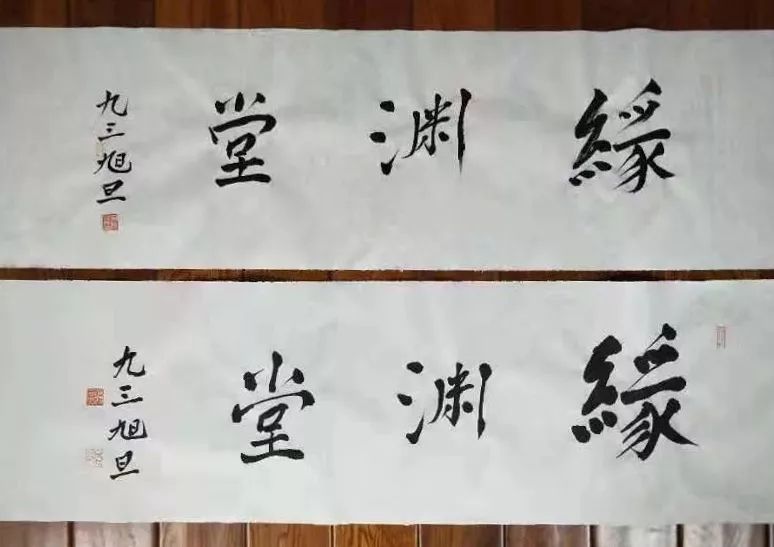 緣渊堂
九三旭旦
緣渊堂
九三旭旦